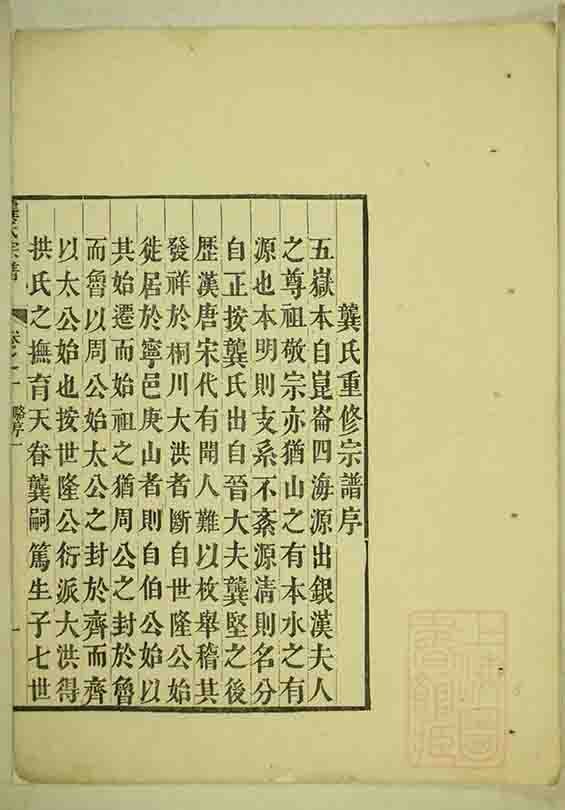 龔氏重修宗譜序
五嶽本自崑崙四海源出銀漢夫人
之尊祖敬宗亦猶山之有本水之有
源也本明則支系不紊源清則名分
自正按龔氏出自晉大夫龔堅之後
歷漢唐宋代有聞人難以枚舉稽其
發祥於桐川大洪者斷自世隆公始
徙居於寧邑庚山者則自伯公始以
其始遷而始祖之猶周公之封於魯
而魯以周公始太公之封於齊而齊
以太公始也按世隆公衍派大洪得
拱氏之撫育天眷龔嗣篤生子七世
龔氏宗譜
卷之一
略序一
上海圖書館藏